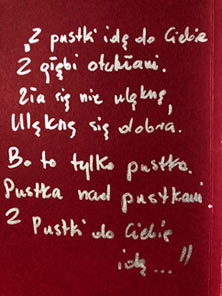 „Z pustki idę do Ciebie
Z głębi otchłani.
Zła się nie ulęknę,
Ulęknę się dobra.
Bo to tylko pustka.
Pustka nad pustkami.
Z Pustki do Ciebie
idę..."